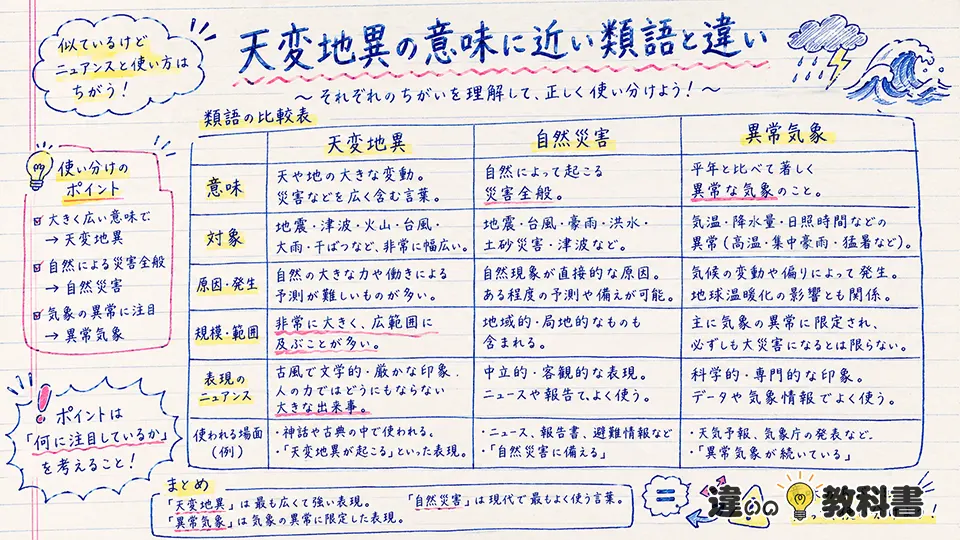 似ているけど
ニュアンスと使い方は
ちがう！
天変地異の意味に近い類語と違い
～ それぞれのちがいを理解して、正しく使い分けよう！～
使い分けの
ポイント
大きく広い意味で
→ 天変地異
自然による災害全般
→ 自然災害
気象の異常に注目
→ 異常気象
ポイントは
「何に注目しているか」
を考えること！
類語の比較表
天変地異 自然災害 異常気象
意味
天や地の大きな変動。
災害などを広く含む言葉。
自然によって起こる
災害全般。
平年と比べて著しく
異常な気象のこと。
対象
地震・津波・火山・台風・
大雨・干ばつなど、非常に幅広い。
地震・台風・豪雨・洪水・
土砂災害・津波など。
気温・降水量・日照時間などの
異常（高温・集中豪雨・猛暑など）。
原因・発生
自然の大きな力や働きによる
予測が難しいものが多い。
自然現象が直接的な原因。
ある程度の予測や備えが可能。
気候の変動や偏りによって発生。
地球温暖化の影響とも関係。
規模・範囲
非常に大きく、広範囲に
及ぶことが多い。
地域的・局地的なものも
含まれる。
主に気象の異常に限定され、
必ずしも大災害になるとは限らない。
表現の
ニュアンス
古風で文学的・厳かな印象．
人の力ではどうにもならない
大きな出来事。
中立的・客観的な表現。
ニュースや報告で、よく使う。
科学的・専門的な印象。
データや気象情報でよく使う。
使われる場面
（例）
・神話や古典の中で使われる。
・「天変地異が起こる」といった表現。
・ニュース、報告書、避難情報など
・「自然災害に備える」
・天気予報、気象庁の発表など．
・「異常気象が続いている」
まとめ
「天変地異」は最も広くて強い表現。 「自然災害」は現代で最もよく使う言葉。
「異常気象」は気象の異常に限定した表現。
違いの 教科書